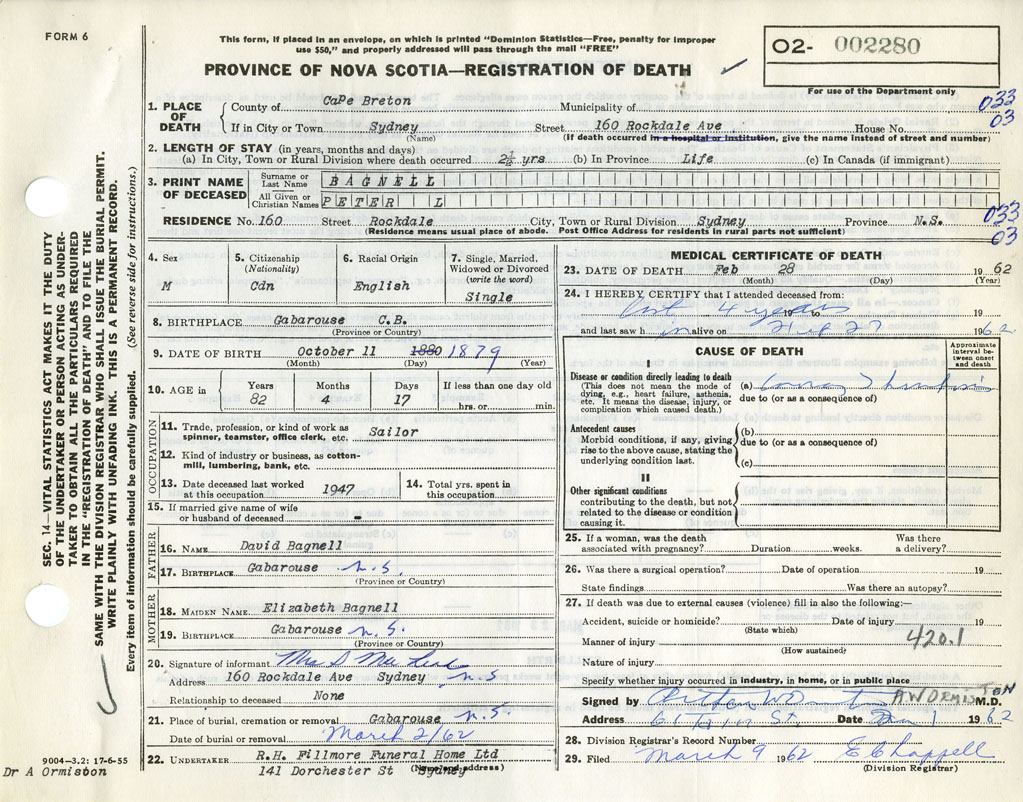 FORM 6
This form, if placed in an envelope, on which is printed "Dominion Statistics—Free, penalty for improper
use $50," and properly addressed will pass through the mail "FREE"
O2- 002280
PROVINCE OF NOVA SCOTIA—REGISTRATION OF DEATH
For use of the Department only
1. PLACE OF DEATH County of CaPe Breton Municipality of 033
If in City or Town Sydney Street 160 Rockdale Ave House No. 03
(Name) (If death occurred in a hospital or institution, give the name instead of street and number)
2. LENGTH OF STAY (in years, months and days)
(a) In City, Town or Rural Division where death occurred 2½ yrs (b) In Province Life (c) In Canada (if immigrant)
3. PRINT NAME OF DECEASED Surname or Last Name BAGNELL
All Given or Christian Names PETER L
RESIDENCE No. 160 Street Rockdale City, Town or Rural Division Sydney Province N.S. 033
(Residence means usual place of abode. Post Office Address for residents in rural parts not sufficient) 03
4. Sex M
5. Citizenship (Nationality) Cdn
6. Racial Origin English
7. Single, Married, Widowed or Divorced (write the word) Single
8. BIRTHPLACE Gabarouse C.B.
(Province or Country)
9. DATE OF BIRTH October 11 1880 1879
(Month) (Day) (Year)
10. AGE in Years Months Days If less than one day old
82 4 17 hrs. or min.
OCCUPATION
11. Trade, profession, or kind of work as spinner, teamster, office clerk, etc. Sailor
12. Kind of industry or business, as cotton-mill, lumbering, bank, etc.
13. Date deceased last worked at this occupation 1947
14. Total yrs. spent in this occupation
15. If married give name of wife or husband of deceased -
FATHER
16. NAME David Bagnell
17. BIRTHPLACE Gabarouse N.S.
(Province or Country)
MOTHER
18. MAIDEN NAME Elizabeth Bagnell
19. BIRTHPLACE Gabarouse N.S.
(Province or Country)
20. Signature of informant Mrs
Address 160 Rockdale Ave Sydney N.S
Relationship to deceased None
21. Place of burial, cremation or removal Gabarouse N.S.
Date of burial or removal March 2/62
22. UNDERTAKER R.H. Fillmore Funeral Home Ltd
141 Dorchester St Sydney
MEDICAL CERTIFICATE OF DEATH
23. DATE OF DEATH Feb 28 1962
(Month) (Day) (Year)
24. I HEREBY CERTIFY that I attended deceased from:
4 years 19 to 19
and last saw h im alive on Feb 27 1962
CAUSE OF DEATH
Approximate interval between onset and death
I
Disease or condition directly leading to death
(This does not mean the mode of dying, e.g., heart failure, asthenia, etc. It means the disease, injury, or complication which caused death.)
(a) Coronary Thrombosis
due to (or as a consequence of)
Antecedent causes
Morbid conditions, if any, giving rise to the above cause, stating the underlying condition last.
(b)
due to (or as a consequence of)
(c)
II
Other significant conditions
contributing to the death, but not related to the disease or condition causing it.
25. If a woman, was the death associated with pregnancy? Duration weeks. Was there a delivery?
26. Was there a surgical operation? Date of operation 19
State findings Was there an autopsy?
27. If death was due to external causes (violence) fill in also the following:—
Accident, suicide or homicide? Date of injury 19
(State which)
Manner of injury 420.1
(How sustained)
Nature of injury
Specify whether injury occurred in industry, in home, or in public place
Signed by Arthur W Ormiston AWORMISTON M.D.
Address St. Date 1 1962
28. Division Registrar's Record Number
29. Filed March 9 1962 E C Chappell
(Division Registrar)
SEC. 14—VITAL STATISTICS ACT MAKES IT THE DUTY
OF THE UNDERTAKER OR PERSON ACTING AS UNDER-
TAKER TO OBTAIN ALL THE PARTICULARS REQUIRED
IN THE "REGISTRATION OF DEATH" AND TO FILE THE
SAME WITH THE DIVISION REGISTRAR WHO SHALL ISSUE THE BURIAL PERMIT.
WRITE PLAINLY WITH UNFADING INK. THIS IS A PERMANENT RECORD.
Every item of information should be carefully supplied. (See reverse side for instructions.)
9004-3.2: 17-6-55
Dr A Ormiston